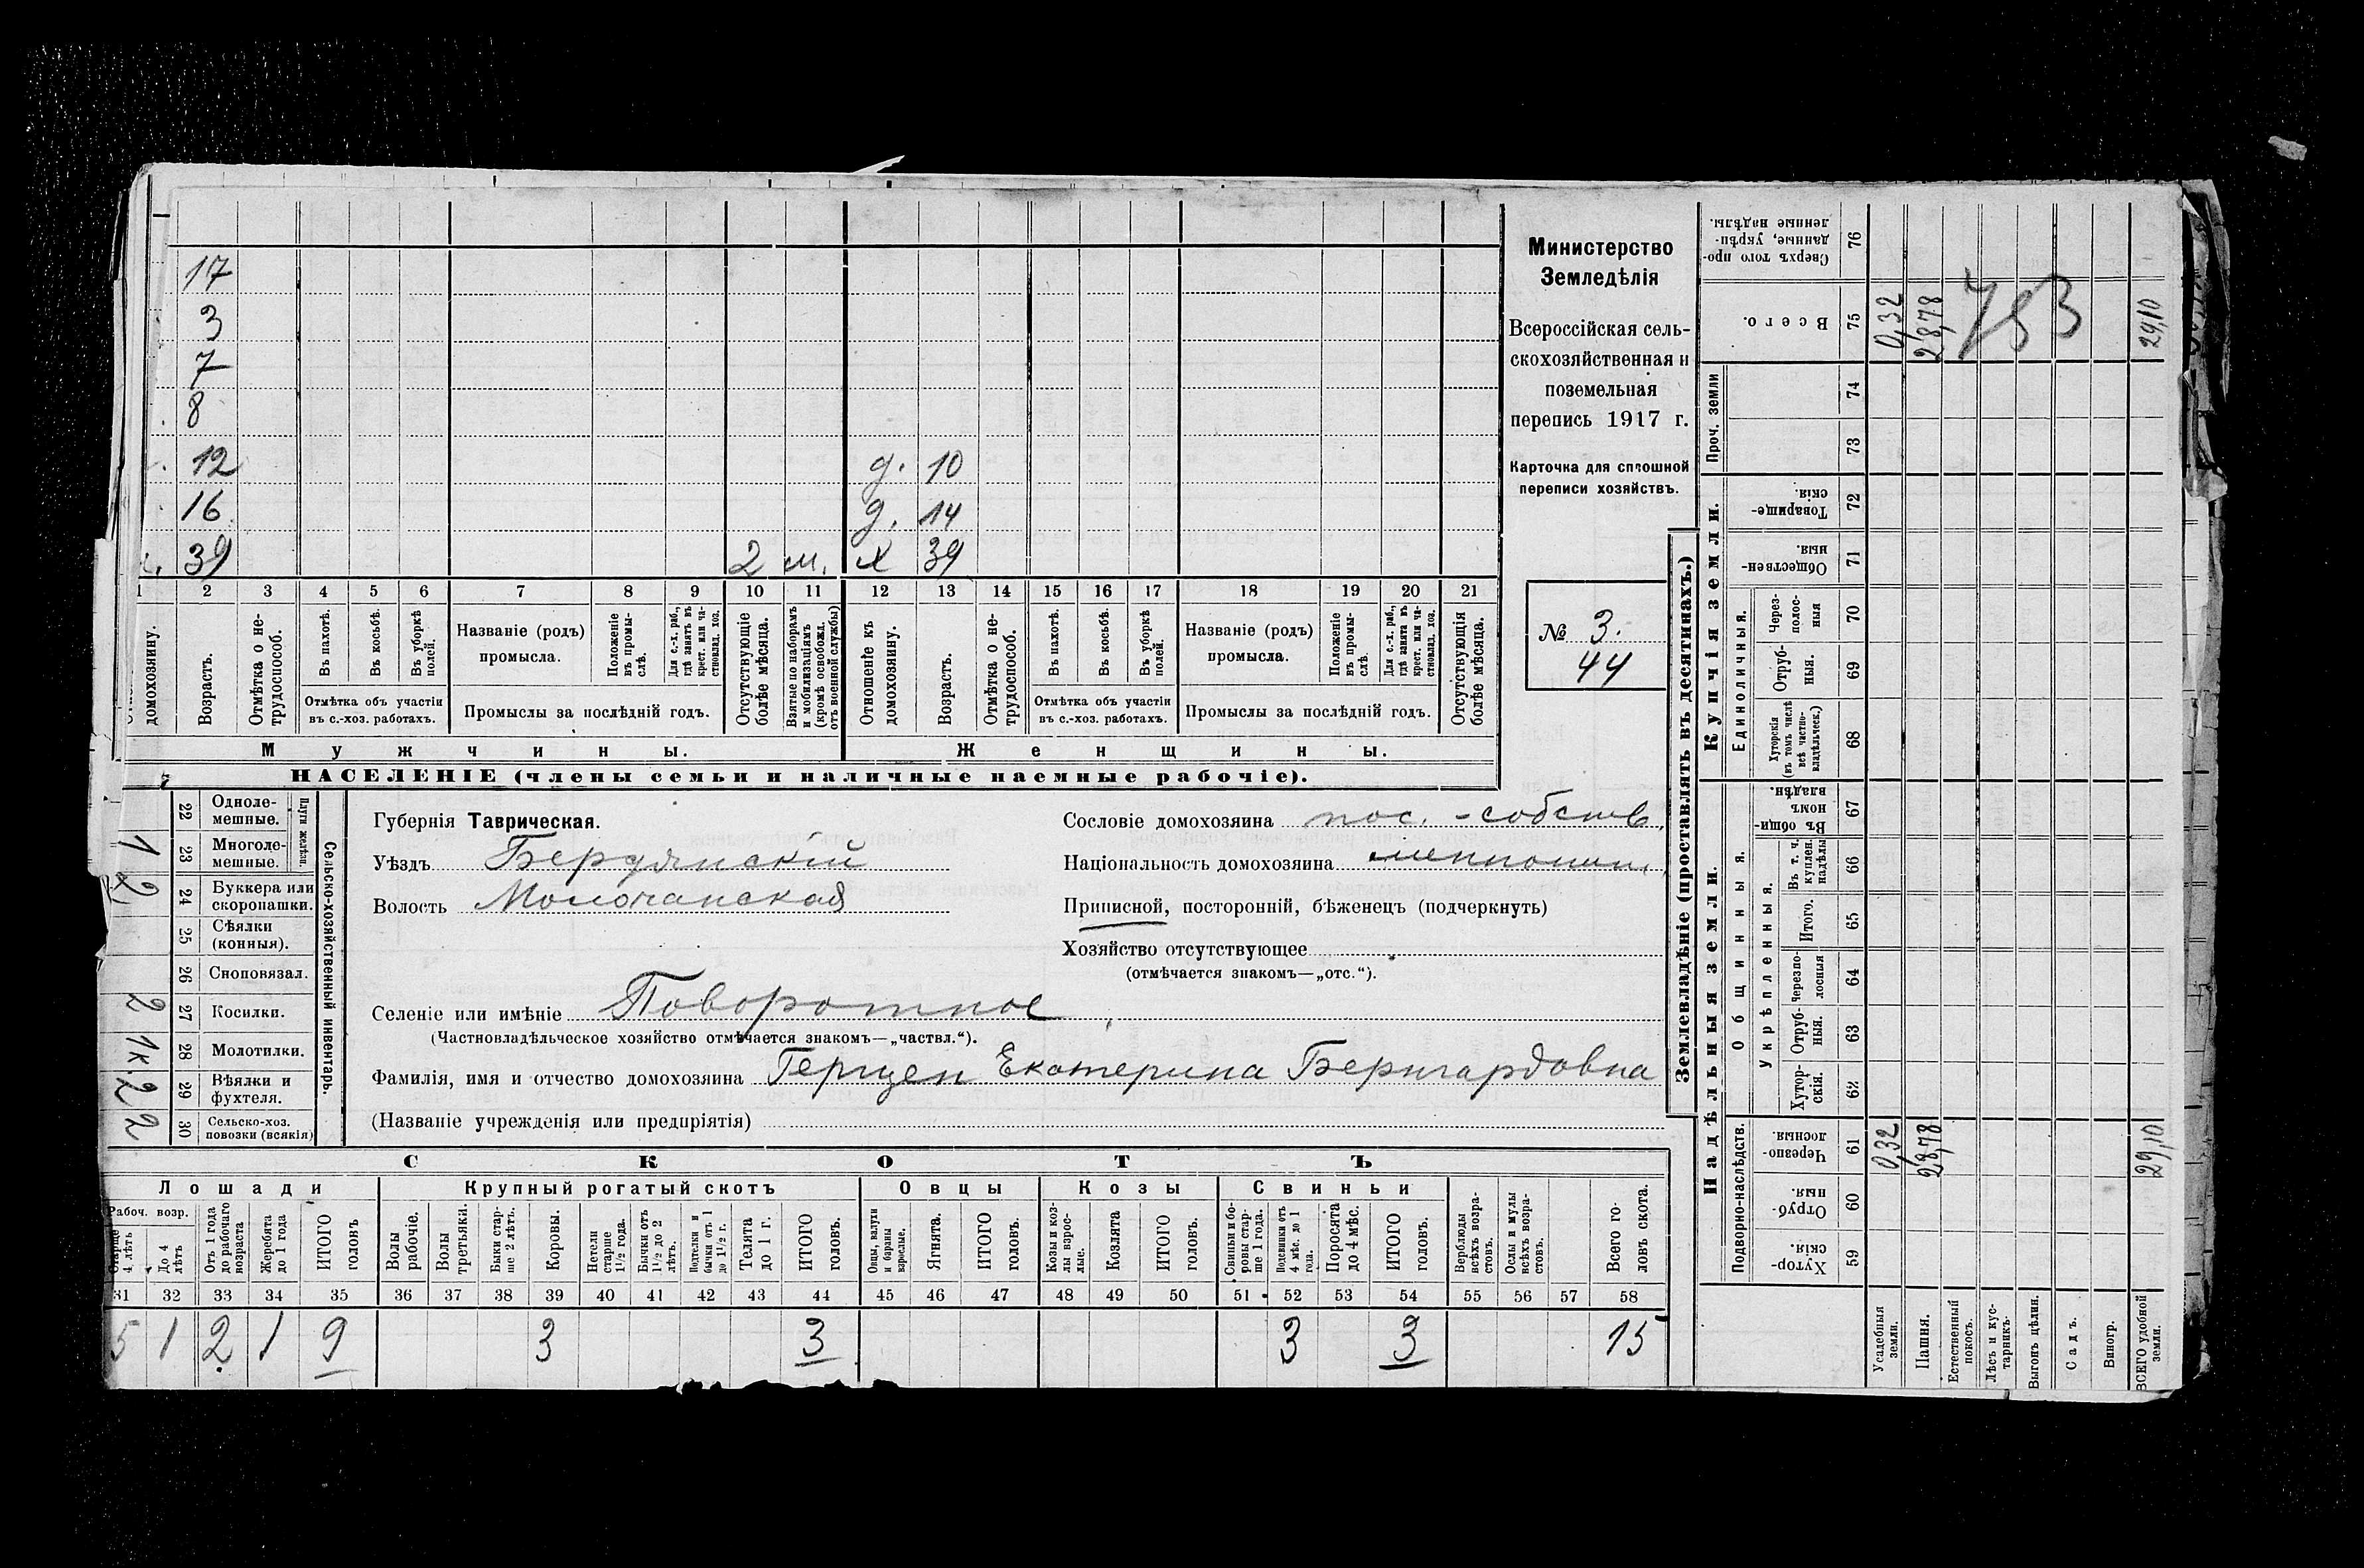 17
3
7
8
12 д. 10
16 д. 14
39 2 м. х 39
1 2 3 4 5 6 7 8 9 10 11 12 13 14 15 16 17 18 19 20 21
домохозяину.
Возрастъ.
Отмѣтка о не-
трудоспособ.
Въ пахотѣ.
Въ косьбѣ.
Въ уборкѣ
полей.
Отмѣтка объ участіи
въ с.-хоз. работахъ.
Названіе (родъ)
промысла.
Положеніе
въ промы-
слѣ.
Для с.-х. раб.,
гдѣ занятъ въ
крест. или ча-
стновлад. хоз.
Промыслы за послѣдній годъ.
Отсутствующіе
болѣе мѣсяца.
Взятые по наборамъ
и мобилизаціямъ
(кромѣ освобожд.
отъ военной службы)
Отношеніе къ
домохозяину.
Возрастъ.
Отмѣтка о не-
трудоспособ.
Въ пахотѣ.
Въ косьбѣ.
Въ уборкѣ
полей.
Отмѣтка объ участіи
въ с.-хоз. работахъ.
Названіе (родъ)
промысла.
Положеніе
въ промы-
слѣ.
Для с.-х. раб.,
гдѣ занята въ
крест. или ча-
стновлад. хоз.
Промыслы за послѣдній годъ.
Отсутствующія
болѣе мѣсяца.
Мужчины.
Женщины.
НАСЕЛЕНІЕ (члены семьи и наличные наемные рабочіе).
Министерство
Земледѣлія
Всероссійская сель-
скохозяйственная и
поземельная
перепись 1917 г.
Карточка для сплошной
переписи хозяйствъ.
№ 3.
44
22 Одноле-
мешные.
1 23 Многоле-
мешные.
Плуги желѣзн.
2 24 Буккера или
скоропашки.
25 Сѣялки
(конныя).
26 Сноповязал.
2 27 Косилки.
1к. 28 Молотилки.
2 29 Вѣялки и
фухтеля.
2 30 Сельско-хоз.
повозки (всякія)
Сельско-хозяйственный инвентарь.
Губернія Таврическая.
Уѣздъ Бердянскій
Волость Молочанская
Сословіе домохозяина пос. - собств.
Національность домохозяина меннонит.
Приписной, посторонній, бѣженецъ (подчеркнуть)
Хозяйство отсутствующее
(отмѣчается знакомъ—„отс.“).
Селеніе или имѣніе Поворотное
(Частновладѣльческое хозяйство отмѣчается знакомъ—„частвл.“).
Фамилія, имя и отчество домохозяина Герцен Екатерина Бернгардовна
(Названіе учрежденія или предпріятія)
СКОТЪ
Лошади
Крупный рогатый скотъ
Овцы
Козы
Свиньи
Рабоч. возр.
Старше
4 лѣтъ
До 4
лѣтъ
Отъ 1 года
до рабочаго
возраста
Жеребята
до 1 года
ИТОГО
головъ
Волы
рабочіе.
Волы
третьяки.
Быки стар-
ше 2 лѣтъ.
Коровы.
Нетели
старше
1½ года.
Бычки отъ
1½ до 2
лѣтъ.
Подтелки и
бычки отъ 1
до 1½ г.
Телята
до 1 г.
ИТОГО
головъ.
Овцы, валухи
и бараны
взрослые.
Ягнята.
ИТОГО
головъ.
Козы и коз-
лы взрос-
лые.
Козлята
ИТОГО
головъ.
Свиньи и бо-
ровы стар-
ше 1 года.
Подсвинки отъ
4 мѣс. до 1
года.
Поросята
до 4 мѣс.
ИТОГО
головъ.
Верблюды
всѣхъ возра-
стовъ.
Ослы и мулы
всѣхъ возра-
стовъ.
Всего го-
ловъ скота.
31 32 33 34 35 36 37 38 39 40 41 42 43 44 45 46 47 48 49 50 51 52 53 54 55 56 57 58
5 1 2 1 9 3 3 3 3 15
Землевладѣніе (проставлять въ десятинахъ.)
Купчія земли.
Надѣльныя земли.
Сверхъ того про-
данные, укрѣп-
ленные надѣлы.
76
Всего.
75 0,32 28,78 29,10
783
Проч. земли
74
73
Товарище-
скія.
72
Обществен-
ныя.
71
Единоличныя.
Через-
полос-
ныя
70
Отруб-
ныя.
69
Хуторскія
(въ томъ числѣ
всѣ частно-
владѣльческ.)
68
Общинныя.
Въ общи-
номъ
владѣн.
67
Укрѣпленныя.
Въ т. ч.
куплен.
надѣлы
66
Итого.
65
Черезпо-
лосныя
64
Отруб-
ныя.
63
Хутор-
скія.
62
Подворно-наслѣдств.
Черезпо-
лосныя.
61 0,32 28,78 29,10
Отруб-
ныя.
60
Хутор-
скія.
59
Усадебныя
земли.
Пашня.
Естественный
покосъ.
Лѣсъ и кус-
тарникъ.
Выгонъ цѣлин.
Садъ.
Виногр.
ВСЕГО удобной
земли.